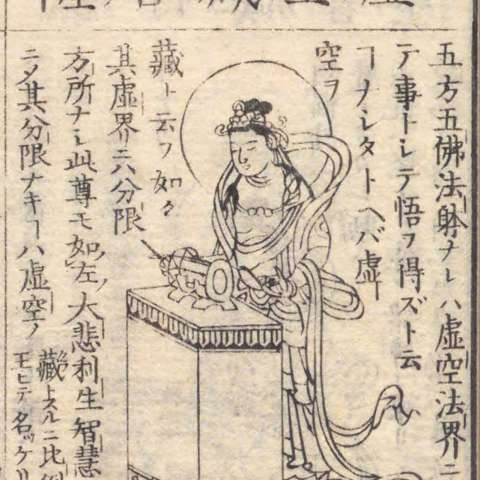 五方五佛法躰ナレハ虚空法界ニ
テ事トレテ悟ヲ得ズト云
ヿナシタトヘバ虚
空ヲ
藏ト云フ如ク
其虚界ニハ分限
方所ナシ此尊モ如左ノ大悲利生智慧
ニメ其分限ナキヿハ虚空ノ
藏トスルニ比
王ヒテ名ッケリ